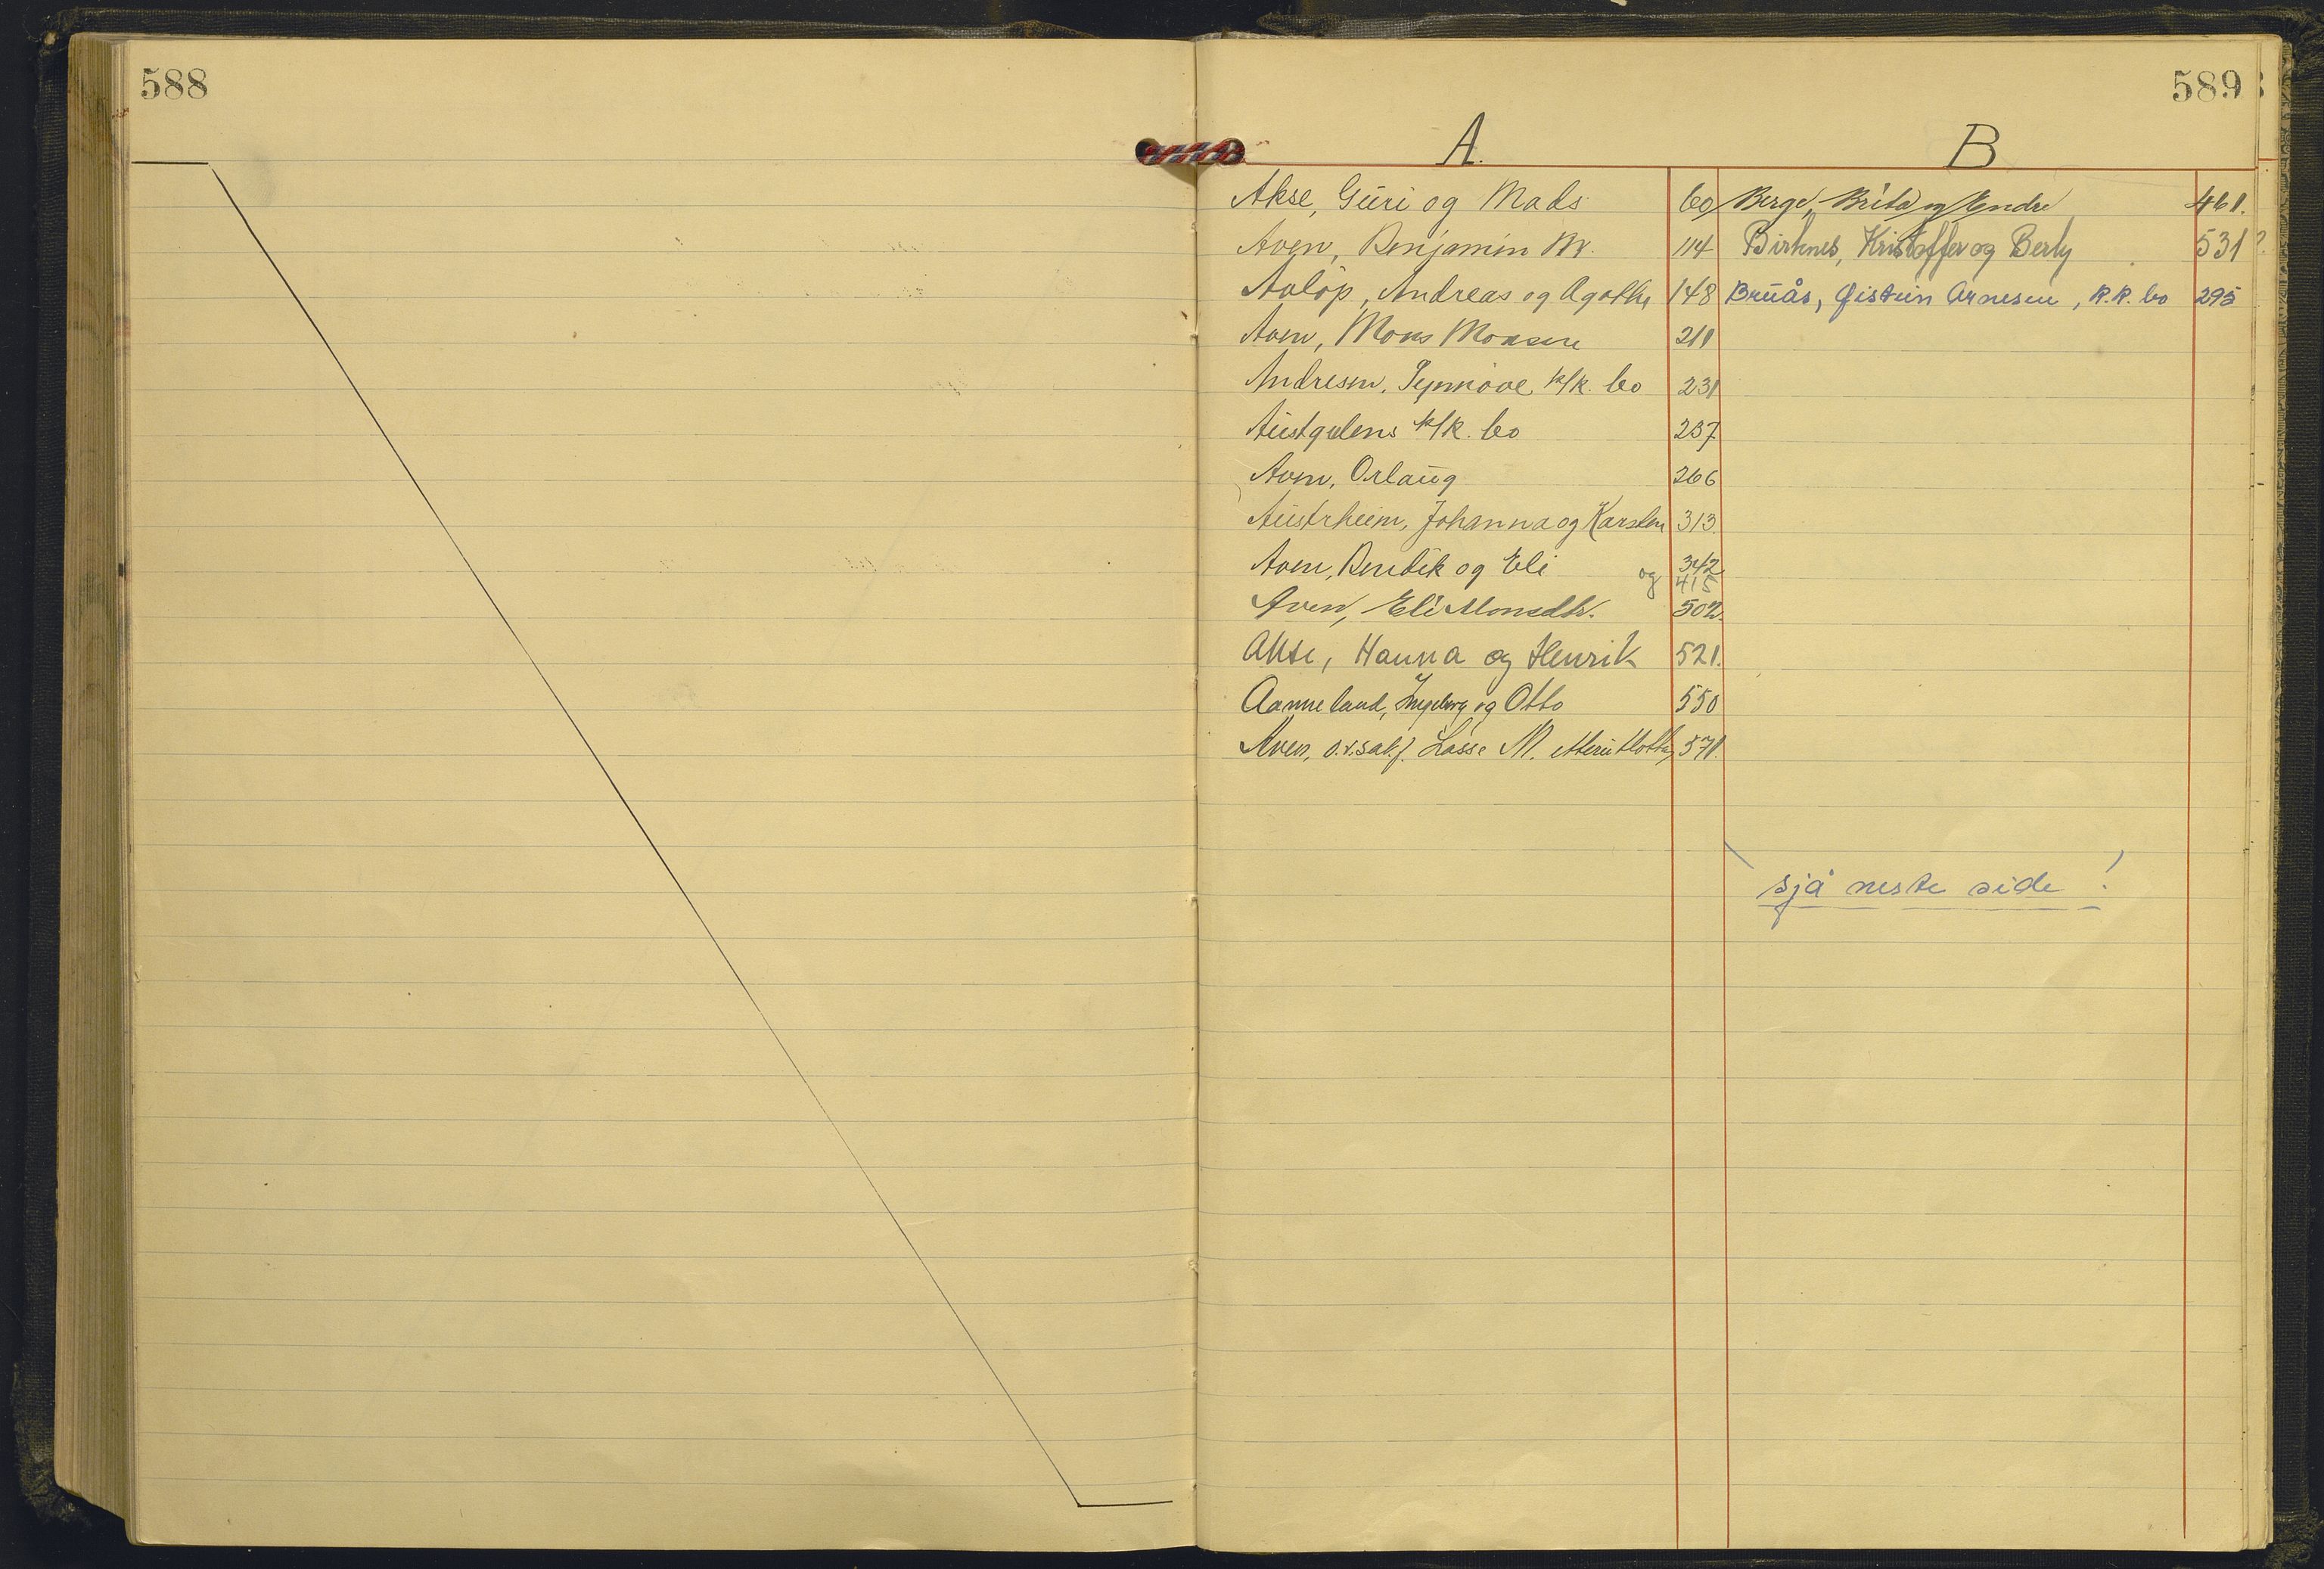 588
589
A.
B
Akse, Guri og Mads 60
Aven, Benjamin M. 114
Avløp, Andreas og Agathe 148
Aven, Mons Monsen 211
Andresen, Synnøve k/k. bo 231
Austgulens k/k. bo 237
Aven, Orlaug 266
Austrheim, Johanna og Karsten 313.
Aven, Bendik og Eli 342
og 415
Aven, Eli Monsdtr. 502.
Akse, Hanna og Henrik 521.
Aanneland, Ingeborg og Otto 550
Aven, o.r.sak.f. Lasse M. 571.
Berge, Brita og Endre 461.
Birknes, Kristoffer og Berly 531
Bruås, Øistein Arnesen, K.K. bo 295
sjå neste side !